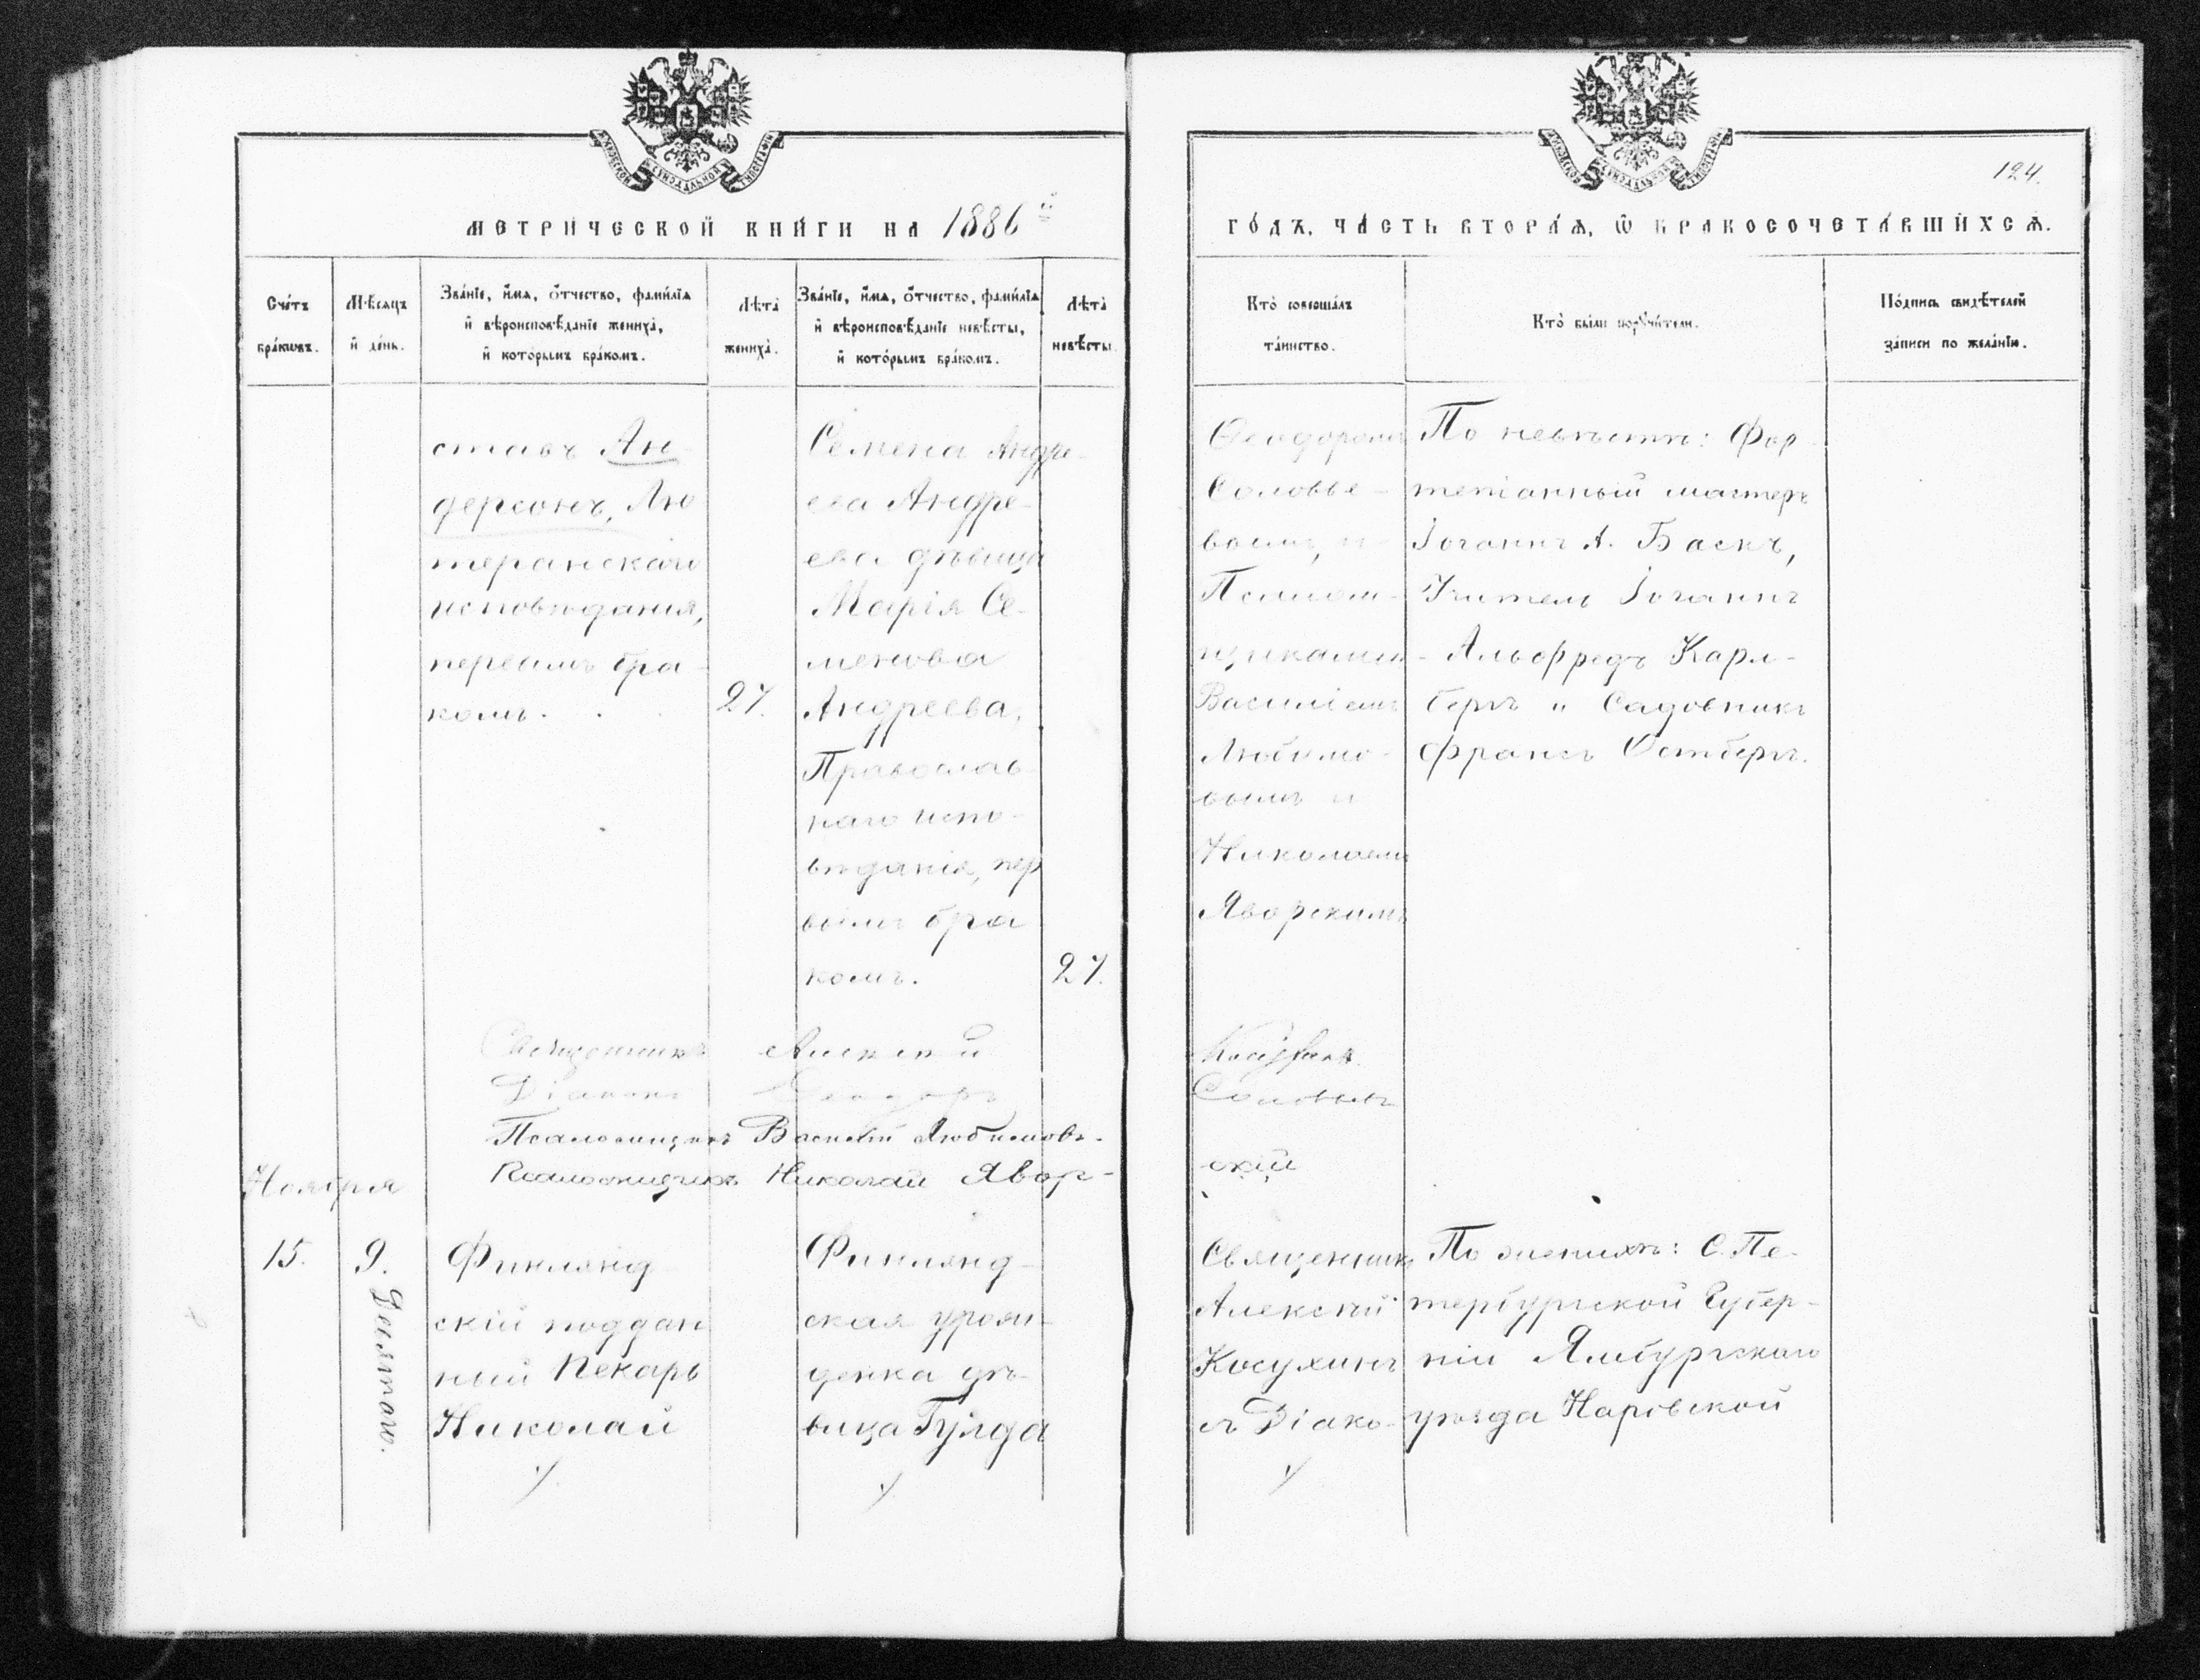 МЕТРИЧЕСКОЙ КНИГИ НА 1886
ГОДЪ, ЧАСТЬ ВТОРАЯ, Ѡ БРАКОСОЧЕТАВШИХСЯ.
124.
Счетъ
браковъ.
Мѣсяцъ
и день.
Званіе, имя, отчество, фамилія
и вѣроисповѣданіе жениха,
и которымъ бракомъ.
Лѣта
жениха.
Званіе, имя, отчество, фамилія
и вѣроисповѣданіе невѣсты,
и которымъ бракомъ.
Лѣта
невѣсты.
Кто совершалъ
таинство.
Кто были поручители.
Подпись свидѣтелей
записи по желанію.
ставъ Ан-
дерсонъ, Лю
теранскаго
исповѣданія,
первымъ бра-
комъ.
27.
Семена Андре-
ева Андре-
ева дѣвица
Марія Се-
менова
Андреева,
Православ-
наго испо-
вѣданія, пер
вымъ бра
комъ.
27.
Ѳеодоромъ
Соловье-
вымъ, и
Псалом-
щикамъ
Василіемъ
Любимо-
вымъ и
Николаемъ
Яворскимъ
По невѣстѣ: Фор-
тепіанный мастеръ
Іоганнъ А. Баскъ,
Учитель Іоганнъ
- Альфредъ Карл-
бергъ и Садовникъ
Франсъ Остбергъ.
Священникъ Алексѣй
Діаконъ Ѳеодоръ Соловьевъ
Псаломщикъ Василій Любимовъ.
Псаломщикъ Николай Явор-
скій
Ноября
15.
9.
Девятаго.
Финлянд-
скій поддан
ный Пекарь
Николай
Финлянд-
ская урож-
денка дѣ-
вица Гулда
Священникъ
Алексѣй
Косухинъ
съ Діако-
По женихѣ: С. Пе-
тербургской Губер-
ніи Ямбургскаго
уѣзда Наровской